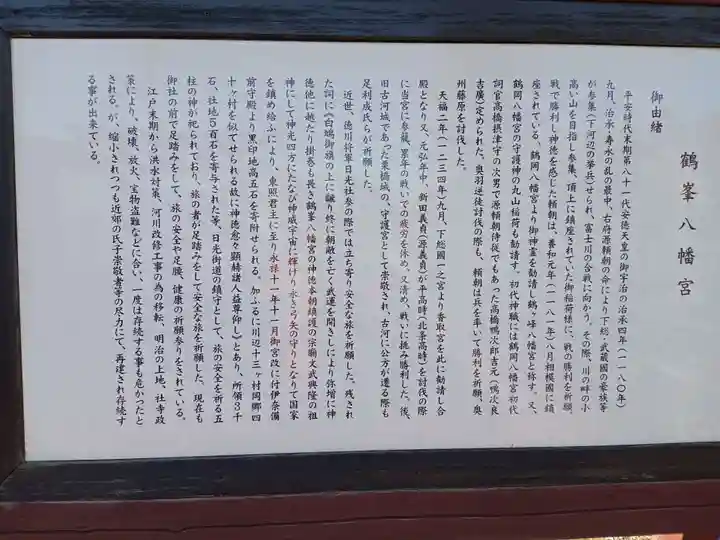 鶴峯八幡宮
御由緒
平安時代末期第八十一代安徳天皇の御宇治の治承四年(一一八〇年)
九月、治承・寿永の乱の最中、右府源頼朝の命により下総、武蔵国の豪族等
が参集(下河辺の華兵)せられ、富士川の合戦に向かう。その際、川の畔の小
高い山を目指し参集、頂上に鎮座されていた御稲荷様に、戦の勝利を祈願。
戦で勝利し神徳を感じた頼朝は、養和元年(一一八一年)八月相模國に鎮
座されている、鶴岡八幡宮より御神霊を勧請し鶴ヶ峰八幡宮と称す。又、
鶴岡八幡宮の守護神の丸山稲荷も勧請す。初代神職には鶴岡八幡宮初代
詞官高橋摂津守の次男で源頼朝侍従でもあった高橋鴨次郎吉元(鴨次良
吉廣)定められた。奥羽逆徒討伐の際も、頼朝は兵を率いて勝利を祈願、奥
州藤原を討伐した。
天福二年(一二三四年)九月、下総国一之宮より香取宮を此に勧請し合
殿となり又、元弘年中、新田義貞(源義貞)が平高時(北条高時)を討伐の際
に当宮に参籠、累年の戦いでの疲労を休め、又清め、戦いに挑み勝利した。後、
旧古河城であった栗橋城の、守護宮として崇敬され、古河に公方が遷る際も
足利成氏らが祈願した。
近世、徳川将軍日光社参の際では立ち寄り安全な旅を祈願した。残され
た詞に《白鳩御旗の上に翩り終に朝敵を亡く武運を開きしにより弥増に神
徳他に越たり掛巻も長き鶴峯八幡宮の神徳本朝鎮護の宗廟文武興隆の祖
神にして神光四方にたなび神威宇宙に輝けり永き弓矢の守りとなりて国家
を鎮め給ふにより、東照君主に至り永禄十一年十一月御宮改に付伊奈備
前守殿より黒印地高五石を寄附せられる。加ふるに川辺十三ヶ村向郷四
十ヶ村を似てせられる故に神徳愈々顕赫諸人益尊仰し》とあり、所領3千
石、社地5百石を寄与された等、日光街道の鎮守として、旅の安全を祈る五
柱の神が祀られており、旅の者が足踏みをして安全な旅を祈願した。現在も
御社の前で足踏みをして、旅の安全や足腰、健康の祈願参りをされている。
江戸末期から洪水対策、河川改修工事の為の移転、明治の上地、社寺政
策により、破壊、放火、宝物盗難などに合い、一度は存続する事も危かったと
される。が、縮小されつつも近郊の氏子崇敬者等の尽力にて、再建され存続す
る事が出来ている。